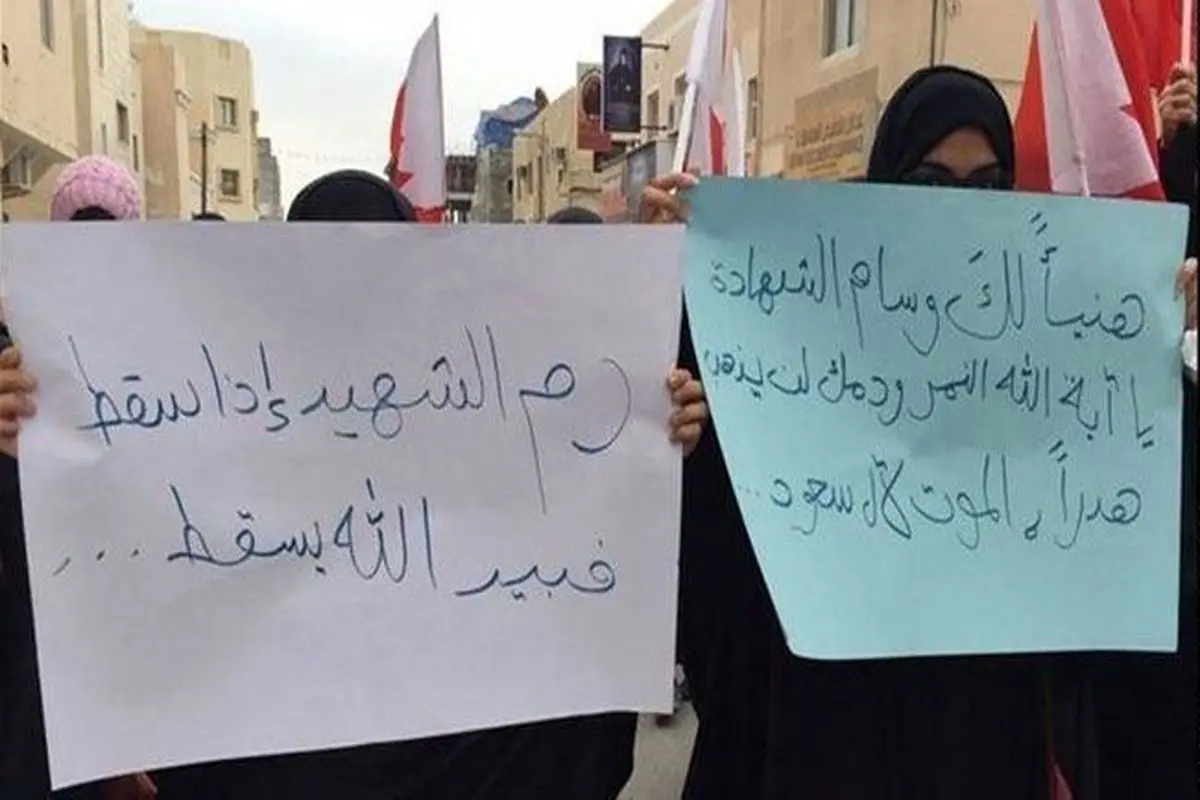 هنيأً لكَ وسام الشهادة
يا آية الله النمر ودمك لن يذهب
هدراً ، الموت لآل سعود...
دم الشهيد إذا سقط
فبيد الله يسقط ...